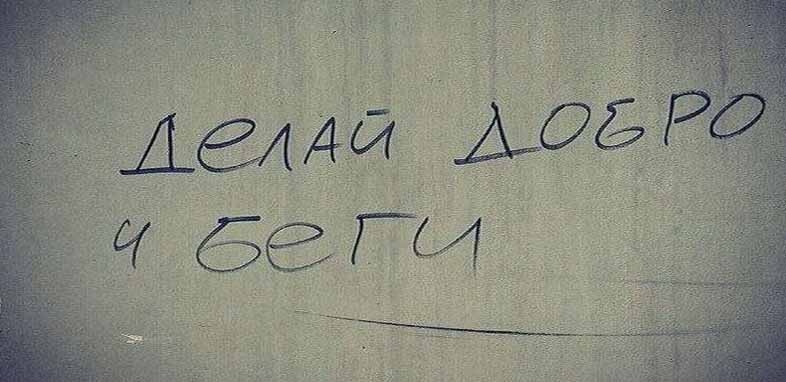 ДеЛАЙ ДОБРО
и беги